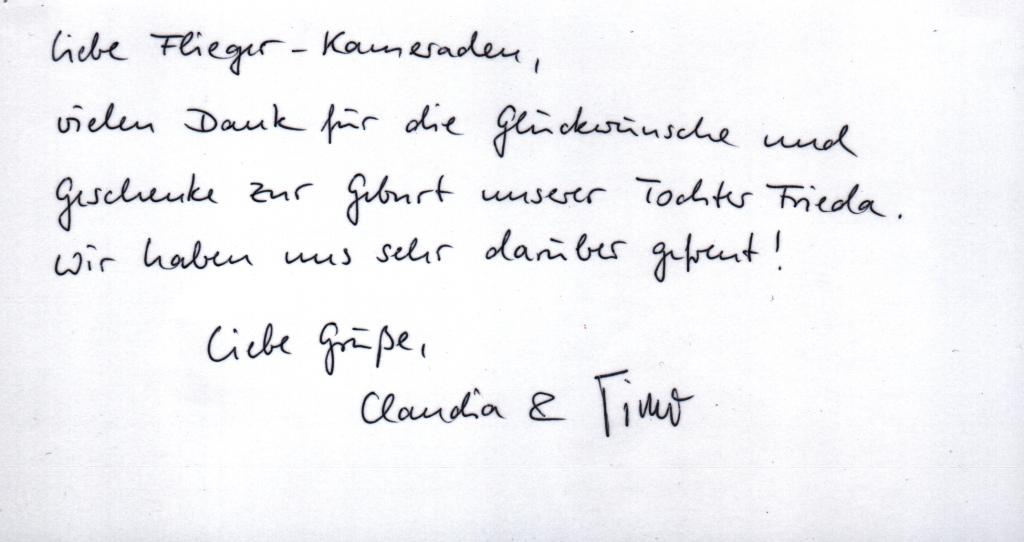 Liebe Flieger-Kameraden,
vielen Dank für die Glückwünsche und
Geschenke zur Geburt unserer Tochter Frieda.
Wir haben uns sehr darüber gefreut!
Liebe Grüße,
Claudia & Timo